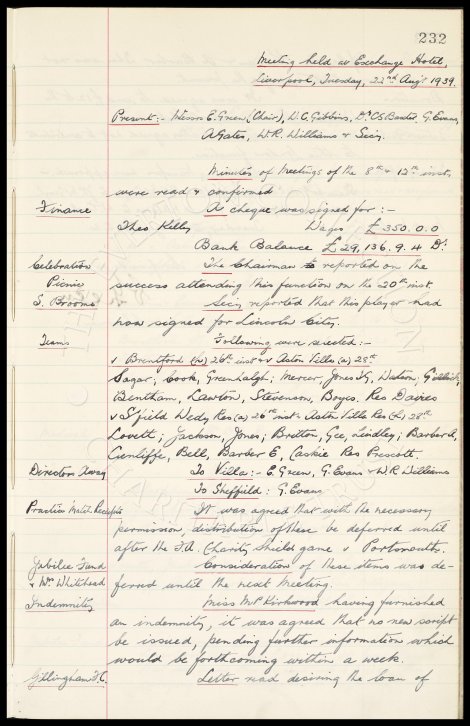 232
Meeting held at Exchange Hotel,
Liverpool, Tuesday, 22nd Aug't 1939.
Present:- Messrs E. Green (Chair), W. C. Gibbins, Dr C S Baxter, G. Evans,
A Gates, W. R. Williams & Secy.
Minutes of Meetings of the 8th & 12th inst.
were read & confirmed
Finance
A cheque was signed for :-
Theo Kelly Wages £350.0.0
Bank Balance £29,136.9.4 Dr
Celebration
Picnic
The Chairman reported on the
success attending this function on the 20th inst
S. Broome
Secy reported that this player had
now signed for Lincoln City.
Teams
Following were selected:-
v Brentford (h) 26th inst & v Aston Villa (a) 28th
Sagar; Cook, Greenhalgh; Mercer, Jones T G, Watson; Gillick,
Bentham, Lawton, Stevenson, Boyes. Res Davies
v S'field Wedy Res (a) 26th inst & Aston Villa Res (h) 28th
Lovett; Jackson, Jones; Britton, Gee, Lindley; Barber A,
Cunliffe, Bell, Barber E, Caskie Res Prescott.
Directors Away
To Villa:- E. Green, G. Evans & W. R Williams
To Sheffield: G. Evans
Practice Match Receipts
It was agreed that with the necessary
permission, distribution of these be deferred until
after the F.A. Charity Shield game v Portsmouth.
Jubilee Fund
& Mr. Whitehead
Consideration of these items was de-
ferred until the next meeting.
Indemnity
Miss M P Kirkwood having furnished
an indemnity, it was agreed that no new script
be issued, pending further information which
would be forthcoming within a week.
Gillingham F.C.
Letter read desiring the loan of